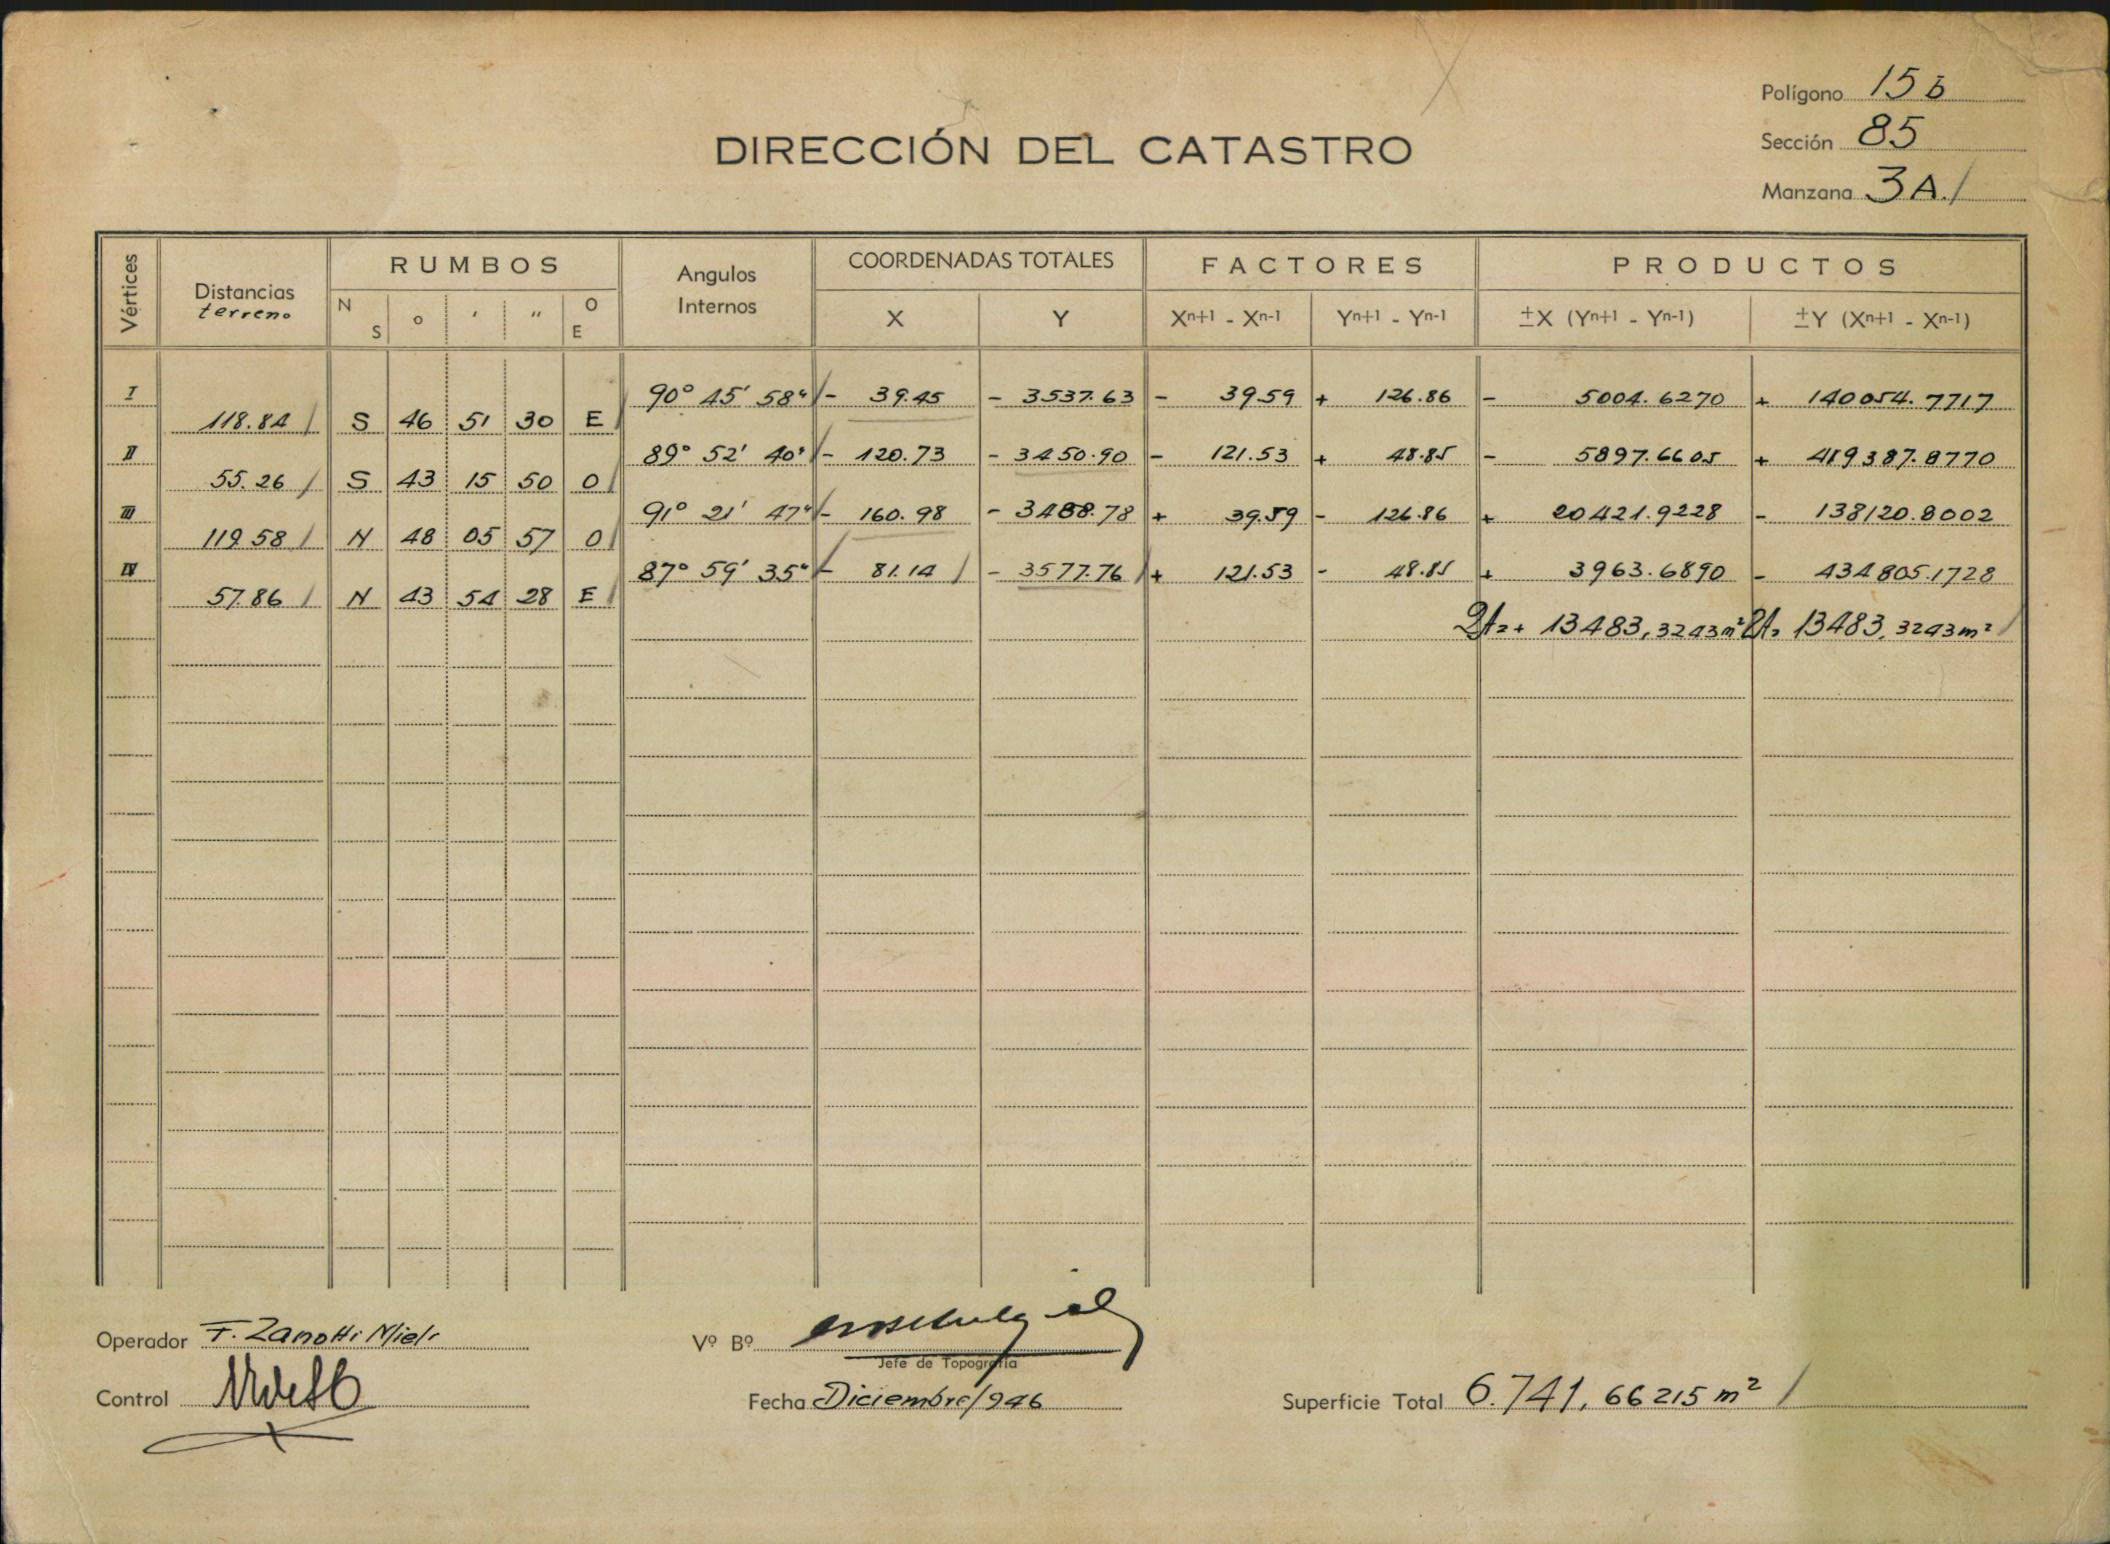 Polígono 15 b
Sección 85
Manzana 3A.
DIRECCIÓN DEL CATASTRO
Vértices Distancias terreno RUMBOS N S o ' " O E Angulos Internos COORDENADAS TOTALES X Y FACTORES Xn+1 - Xn-1 Yn+1 - Yn-1 PRODUCTOS ±X (Yn+1 - Yn-1) ±Y (Xn+1 - Xn-1)
I 90° 45' 58" - 39.45 - 3537.63 - 39.59 + 126.86 - 5004.6270 + 140054.7717
118.84 S 46 51 30 E
II 89° 52' 40" - 120.73 - 3450.90 - 121.53 + 48.85 - 5897.6605 + 419387.8770
55.26 S 43 15 50 O
III 91° 21' 47" - 160.98 - 3488.78 + 39.59 - 126.86 + 20421.9228 - 138120.8002
119.58 N 48 05 57 O
IV 87° 59' 35" - 81.14 - 3577.76 + 121.53 - 48.85 + 3963.6890 - 434805.1728
57.86 N 43 54 28 E
2A=+ 13483,3243m² 2A= 13483,3243m²
Operador F. Zanotti Miel
Vº Bº
Jefe de Topografía
Control
Fecha Diciembre/946
Superficie Total 6.741,66215 m²